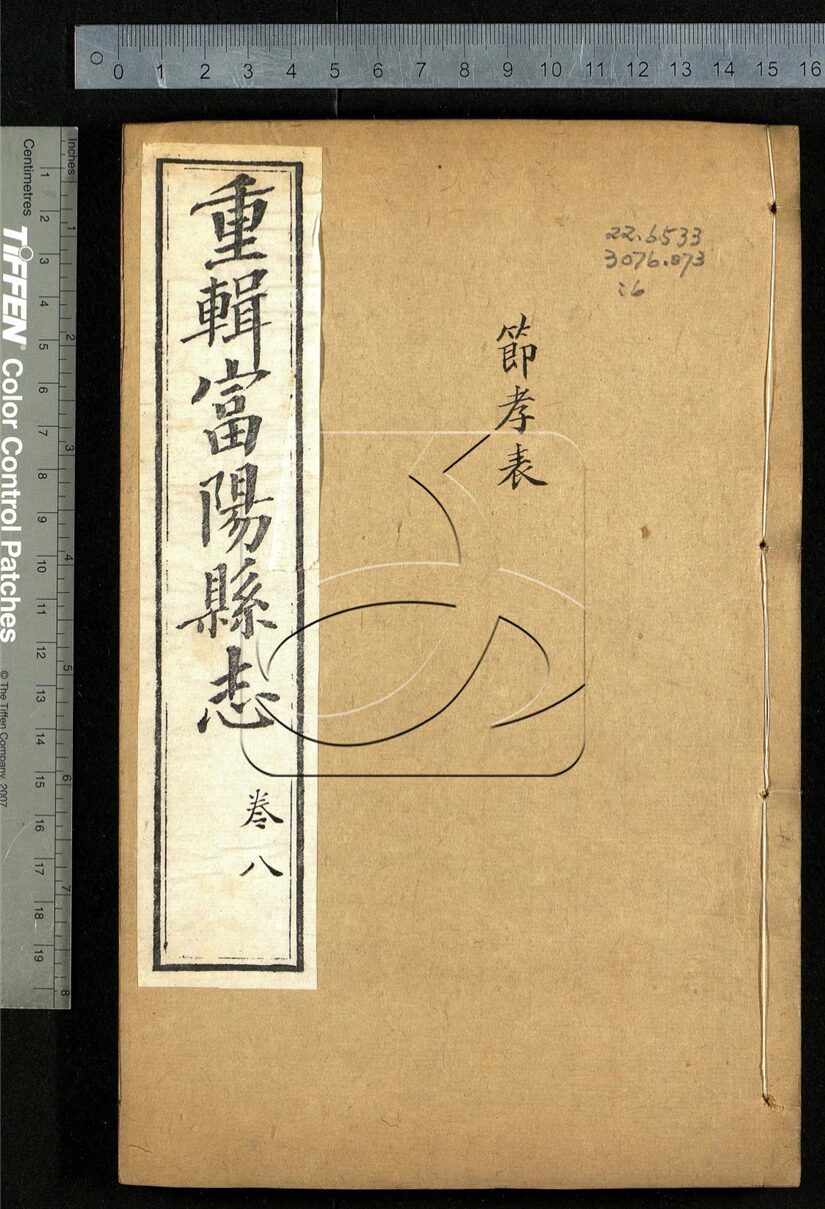 0 1 2 3 4 5 6 7 8 9 10 11 12 13 14 15 16
Inches
1 2 3 4 5 6 7 8
Centimetres
1 2 3 4 5 6 7 8 9 10 11 12 13 14 15 16 17 18 19
TIFFEN® Color Control Patches
© The Tiffen Company, 2007
22.6533
3076.073
:6
節孝表
重輯富陽縣志
卷八